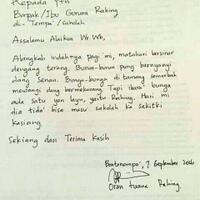 Kepada Yth
Bapak/Ibu Guruna Raking
di - Tempa'/Sakolah
Assalamu Alaikum Wr, Wb,
Alangkah indahnya pagi ni matahari bersinar
dengang terang. Burung-burung pung bernyanyi
dang Senan. Bunga-bunga di tamang semerbak
mewangi dang bermekarang. Tapi ibarat bunga
ada satu yan layu, yaitu Raking. Hari ini
dia tida' bisa masu' sakolah ka sakitki
kasiang
Sekiang dan Terima Kasih
Bontonompo', 7 September 2016
Oran tuana Raking.